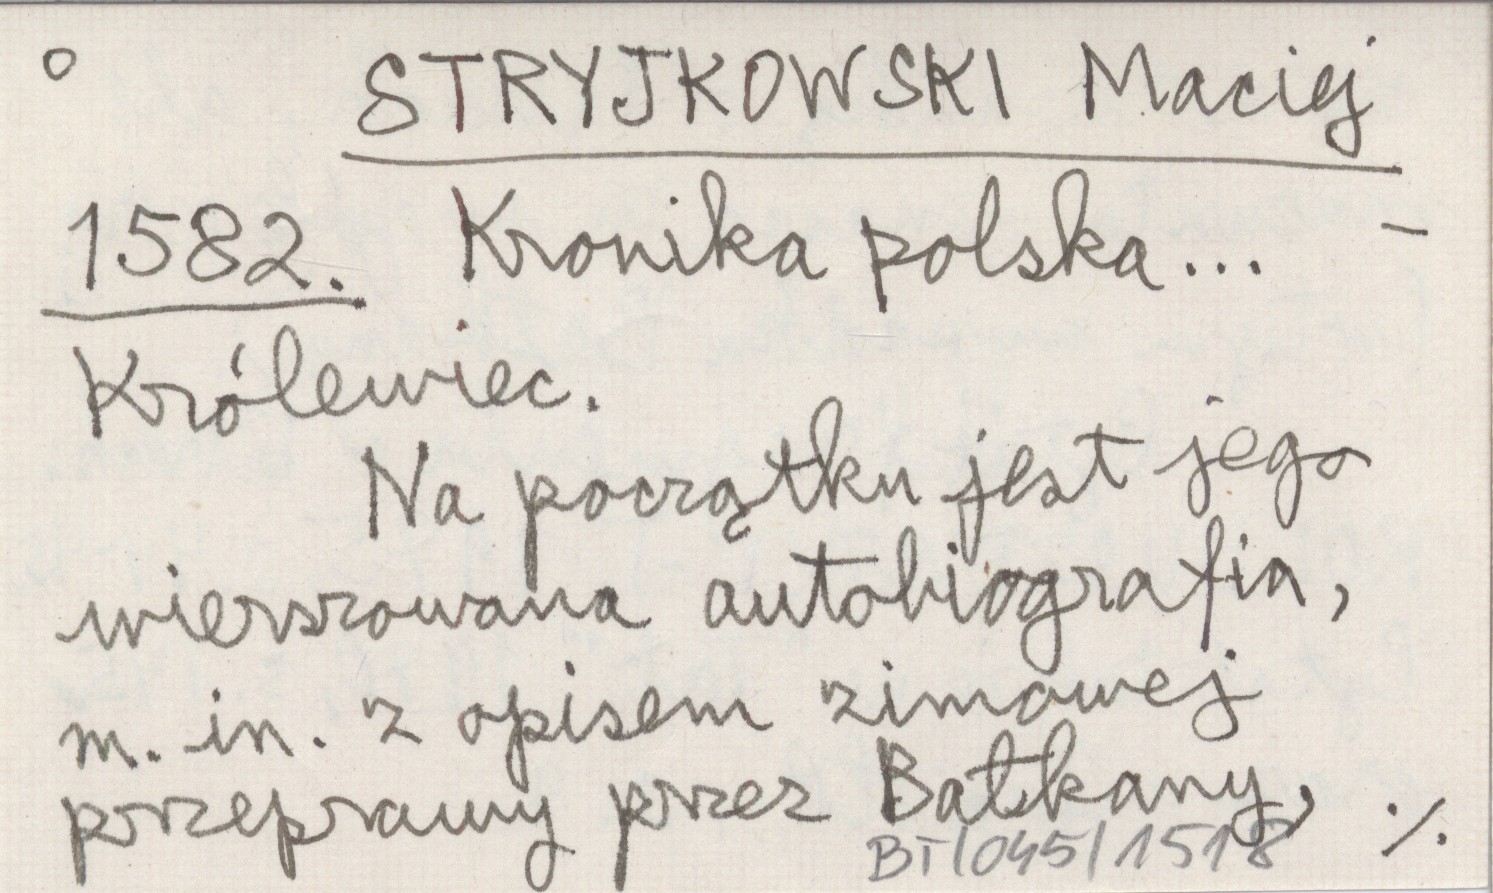 o STRYJKOWSKI Maciej
1582. Kronika polska... –
Królewiec.
Na początku jest jego
wierszowana autobiografia,
m. in. z opisem zimowej
przeprawy przez Bałkany, ./.
BT/045/1518